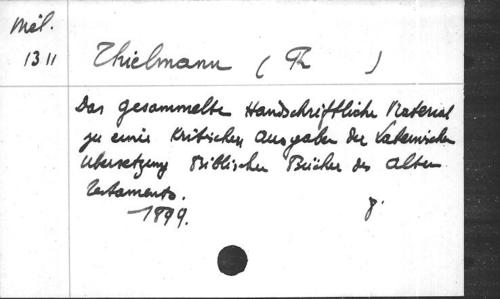 Mél.
1311
Thielmann ( Th )
Das gesammelte Handschriftliche Material
zu einer Kritischen Ausgabe der Lateinischen
Übersetzung Biblischer Bücher des Alten
Testaments.
1899. 8.